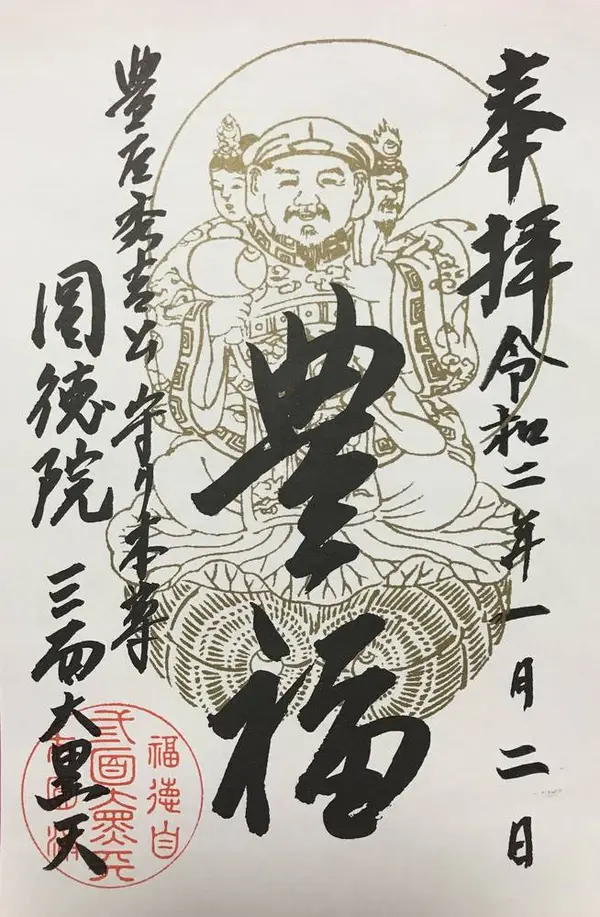 奉拝 令和二年一月二日
豊福
豊臣秀吉公 守り本尊
圓徳院 三面大黒天
福徳自
三面大黒天